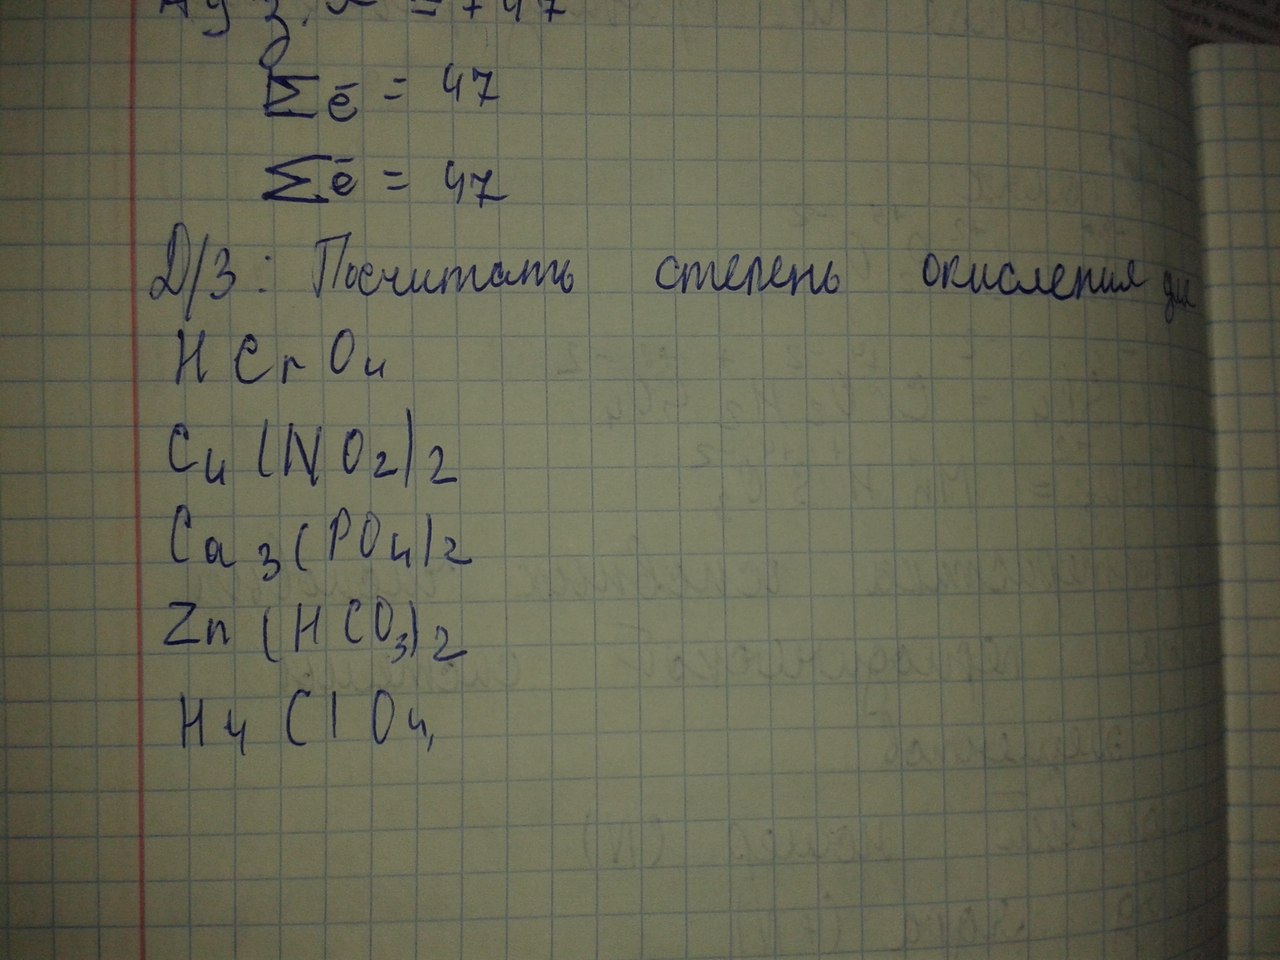 = +47
Σē = 47
Σē = 47
Д/З: Посчитать степень окисления для
HCrO4
Cu(NO2)2
Ca3(PO4)2
Zn(HCO3)2
H4ClO4,